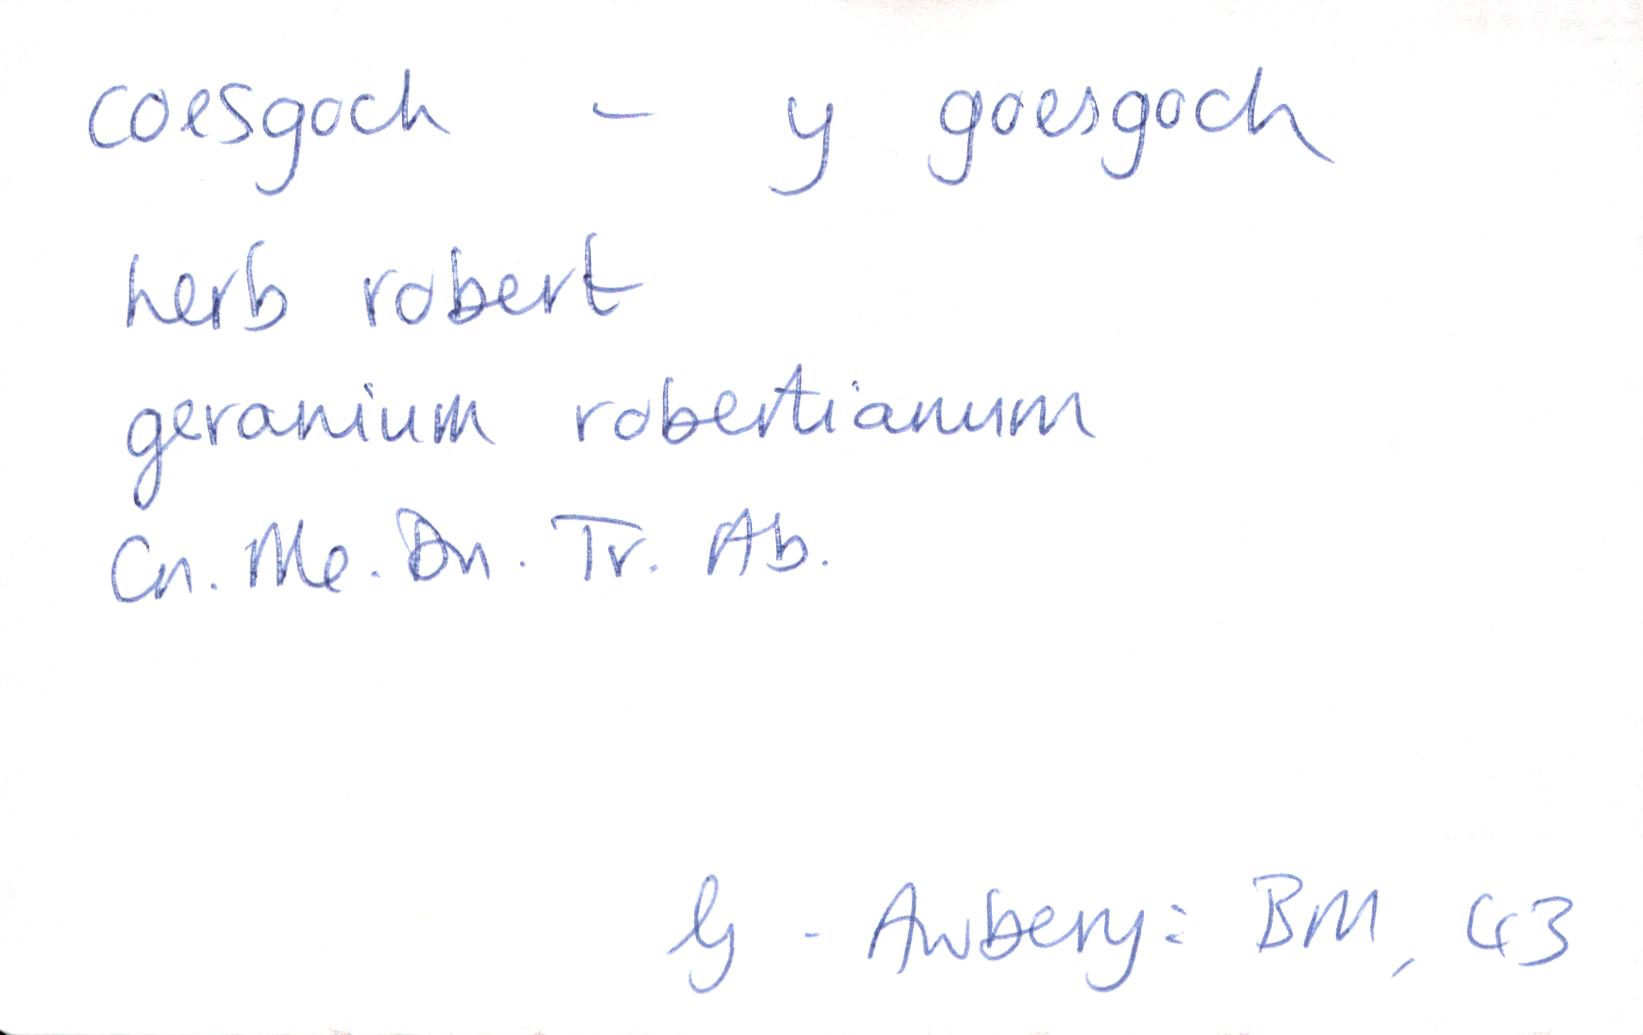 coesgoch - y goesgoch
herb robert
geranium robertianum
Cn. Me. Dn. Tr. Ab.
G - Awbery: BM, 43